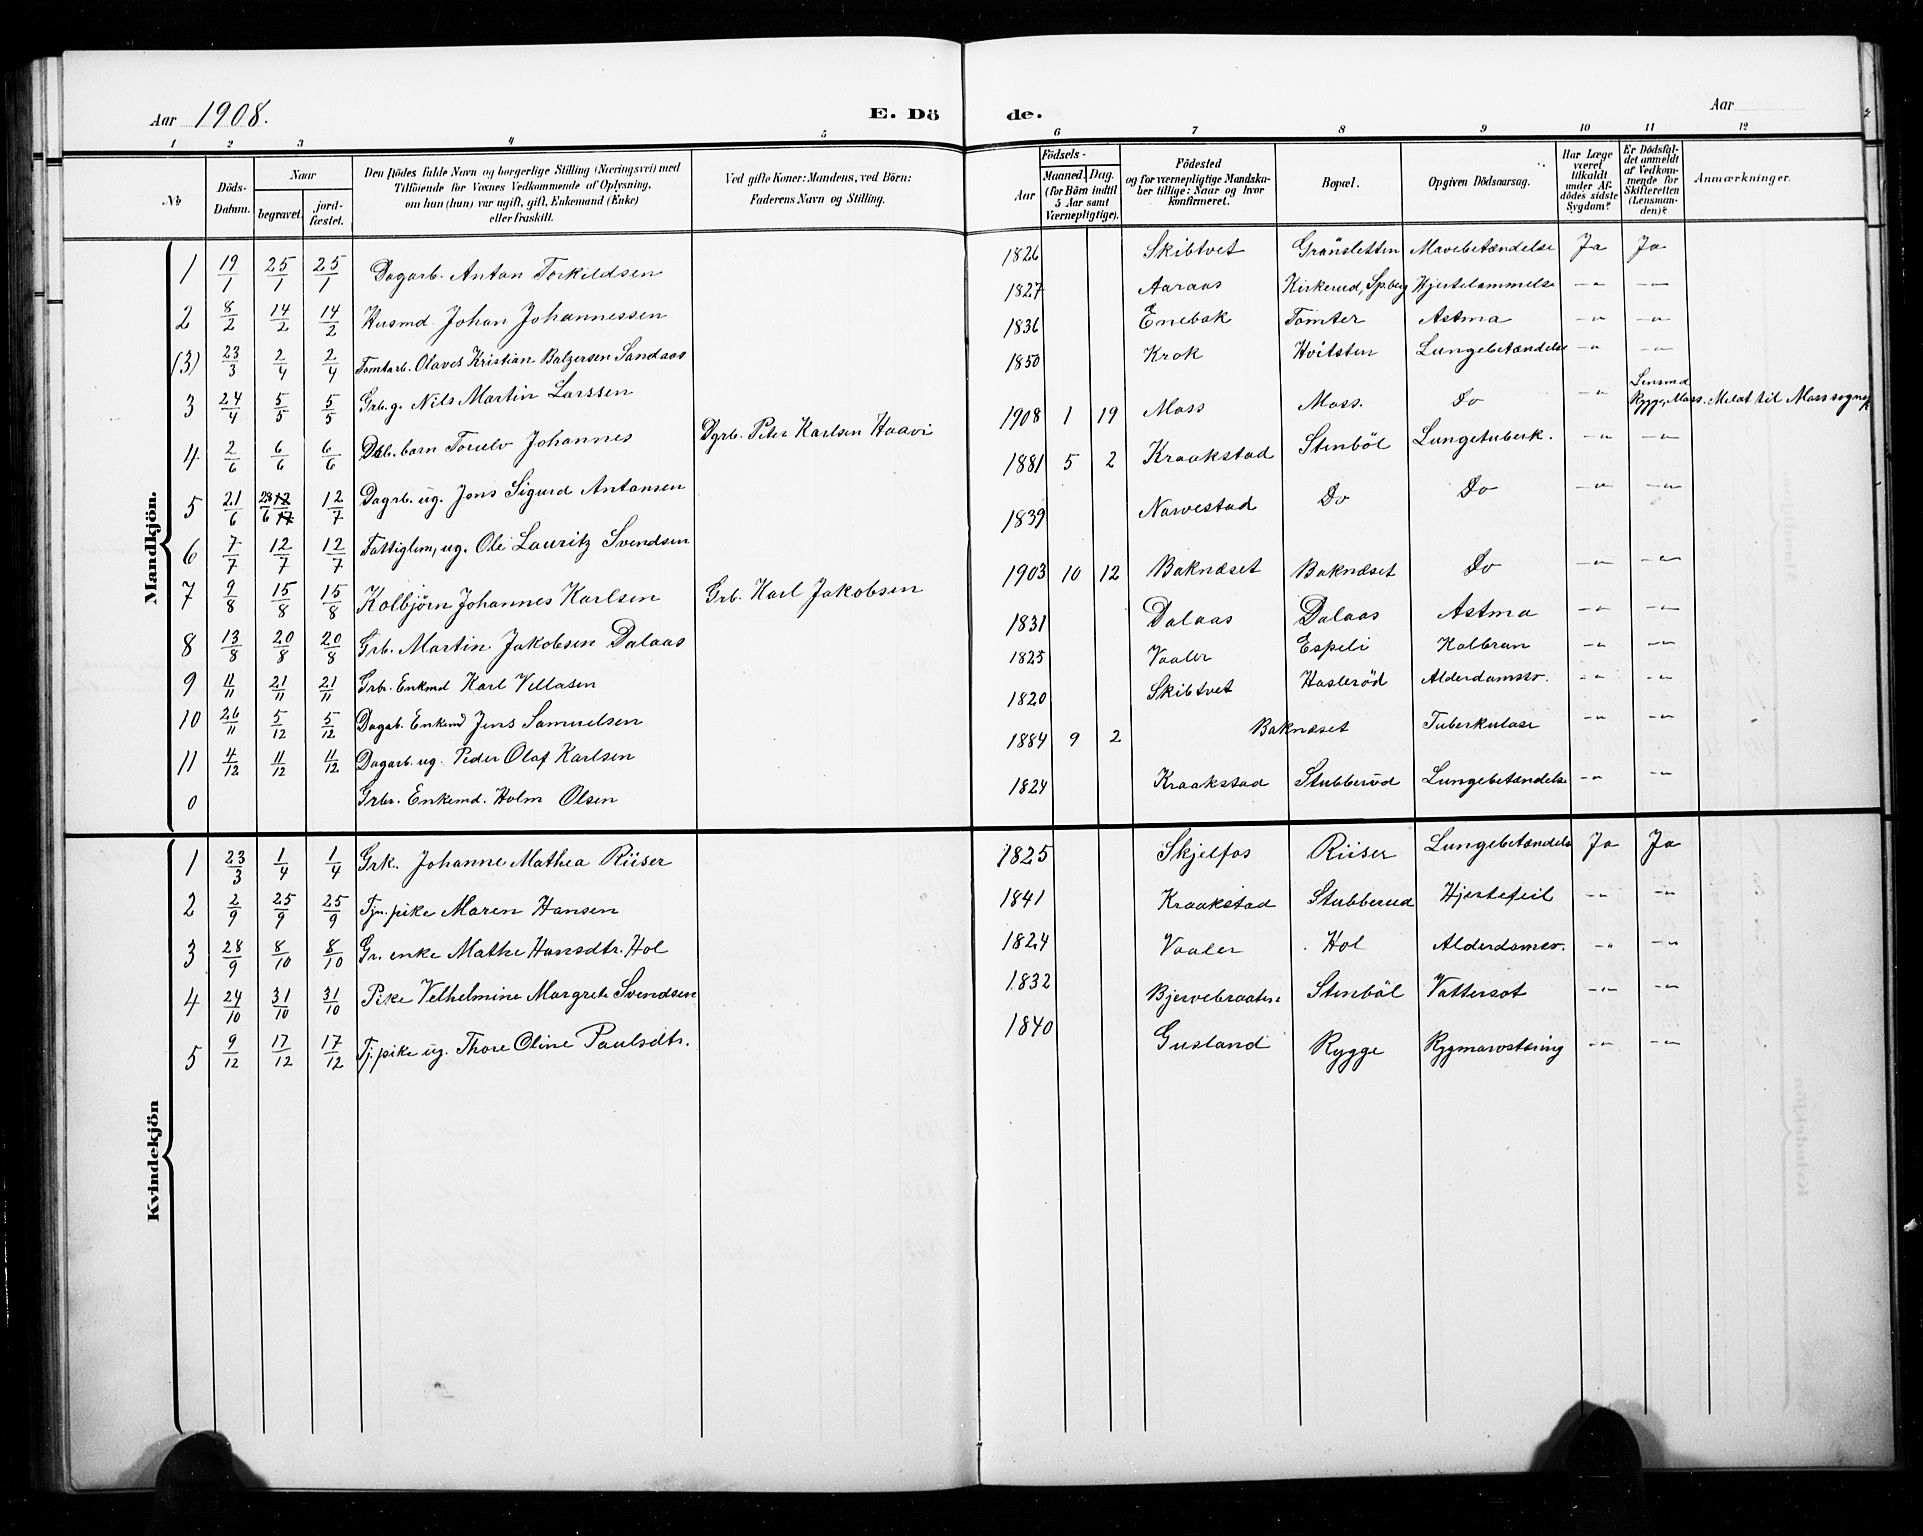 Aar 1908.
E. Dö
de.
Aar
1 2 3 4 5 6 7 8 9 10 11 12
No
Döds-Datum.
Naar
begravet.
jord-fæstet.
Den Dödes fulde Navn og borgerlige Stilling (Næringsvei) med
Tilföiende for Voxnes Vedkommende af Oplysning,
om han (hun) var ugift, gift, Enkemand (Enke)
eller fraskilt.
Ved gifte Koner: Mandens, ved Börn:
Faderens Navn og Stilling.
Födsels-
Aar
Maaned. Dag.
(for Börn indtil
5 Aar samt
Værnepligtige).
Födested
og for værnepligtige Mandska-
ber tillige: Naar og hvor
konfirmeret.
Bopæl.
Opgiven Dödsaarsag.
Har Læge
været
tilkaldt
under Af-
dödes sidste
Sygdom?
Er Dödsfal-
det anmeldt
af Vedkom-
mende for
Skifteretten
(Lensman-
den)?
Anmærkninger.
Mandkjön.
1 19/1 25/1 25/1 Dagarb. Anton Torkildsen 1826 Skibtvet Grönsletten Mavebetændelse Ja Ja
2 8/2 14/2 14/2 Husmd. Johan Johannessen 1827 Aaraas Kirkerud, Spberg Hjertelammelse -"- -"-
(3) 23/3 2/4 2/4 Tomtarb. Olaves Kristian Balzersen Sandaas 1836 Enebak Tomter Astma -"- -"-
3 24/4 5/5 5/5 Grb.g. Nils Martin Larssen 1850 Krok Hvitsten Lungebetændelse -"- -"-
4 2/6 6/6 6/6 Dlb. barn Torulv Johannes Dgrb. Peter Karlsen Haavi 1908 1 19 Moss Moss. Do -"- Lensmd Rygge, Moss. Melat til Moss sognep
5 21/6 28/6 12/7 Dagrb. ug. Jens Sigurd Antonsen 1881 5 2 Kraakstad Stenböl Lungetuberk. -"- -"-
6 7/7 12/7 12/7 Fattiglem, ug. Ole Lauritz Svendsen 1839 Navestad Do Do -"- -"-
7 9/8 15/8 15/8 Kolbjörn Johannes Karlsen Grb. Karl Jakobsen 1903 10 12 Baknæset Baknæset Do -"- -"-
8 13/8 20/8 20/8 Grb. Martin Jakobsen Dalaas 1831 Dalaas Dalaas Astma -"- -"-
9 11/11 21/11 21/11 Grbr. Enkmd Karl Villasen 1825 Vaaler Espeli Kolbran -"- -"-
10 26/11 5/12 5/12 Dagab. Enkemd Jens Samuelsen 1820 Skibtvet Hasleröd Alderdomssv. -"- -"-
11 4/12 11/12 11/12 Dagarb. ug. Peder Olaf Karlsen 1884 9 2 Baknæset Tuberkulose -"- -"-
0 Grbr. Enkemd. Holm Olsen 1824 Kraakstad Stubberud Lungebetændelse -"- -"-
Kvindekjön
1 23/3 1/4 1/4 Grk. Johanne Mathea Riiser 1825 Skjelfos Riiser Lungebetændelse Ja Ja
2 2/9 25/9 25/9 Tjn. pike Maren Hansen 1841 Kraakstad Stubberud Hjertefeil -"- -"-
3 28/9 8/10 8/10 Gr. enke Mathe Hansdtr. Hol 1824 Vaaler Hol Alderdomsv. -"- -"-
4 24/10 31/10 31/10 Pike Velhelmine Margrete Svendsen 1832 Bjervebraaten Stenböl Vattersot -"- -"-
5 9/12 17/12 17/12 Tj. pike ug. Thore Oline Paulsdtr. 1840 Gusland Rygge Rygmarvstæring -"- -"-